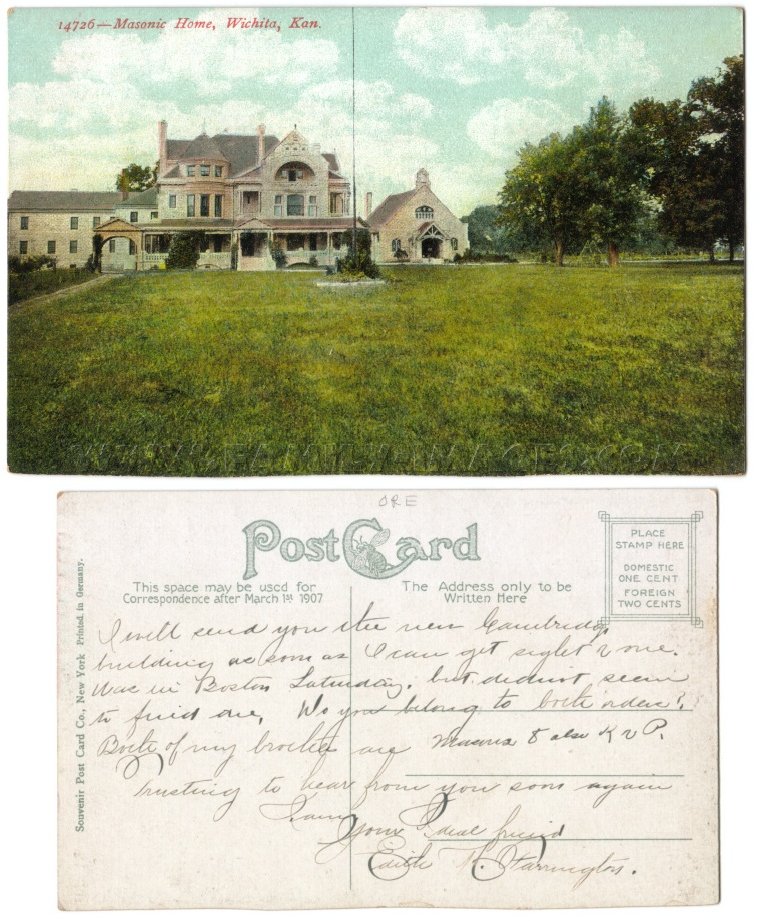 14726—Masonic Home, Wichita, Kan.
WWW.FAMILYIMAGES.COM
ORE
Post Card
PLACE
STAMP HERE
DOMESTIC
ONE CENT
FOREIGN
TWO CENTS
This space may be used for
Correspondence after March 1st 1907
The Address only to be
Written Here
Souvenir Post Card Co., New York Printed in Germany.
I will send you the new Cambridge
building as soon as I can get sight of one.
Was in Boston Saturday, but did not seem
to find one. Do you belong to both orders?
Both of my brothers are Masons & also K of P.
Trusting to hear from you soon again
I am
Your Ideal friend
Edith H. Farrington.